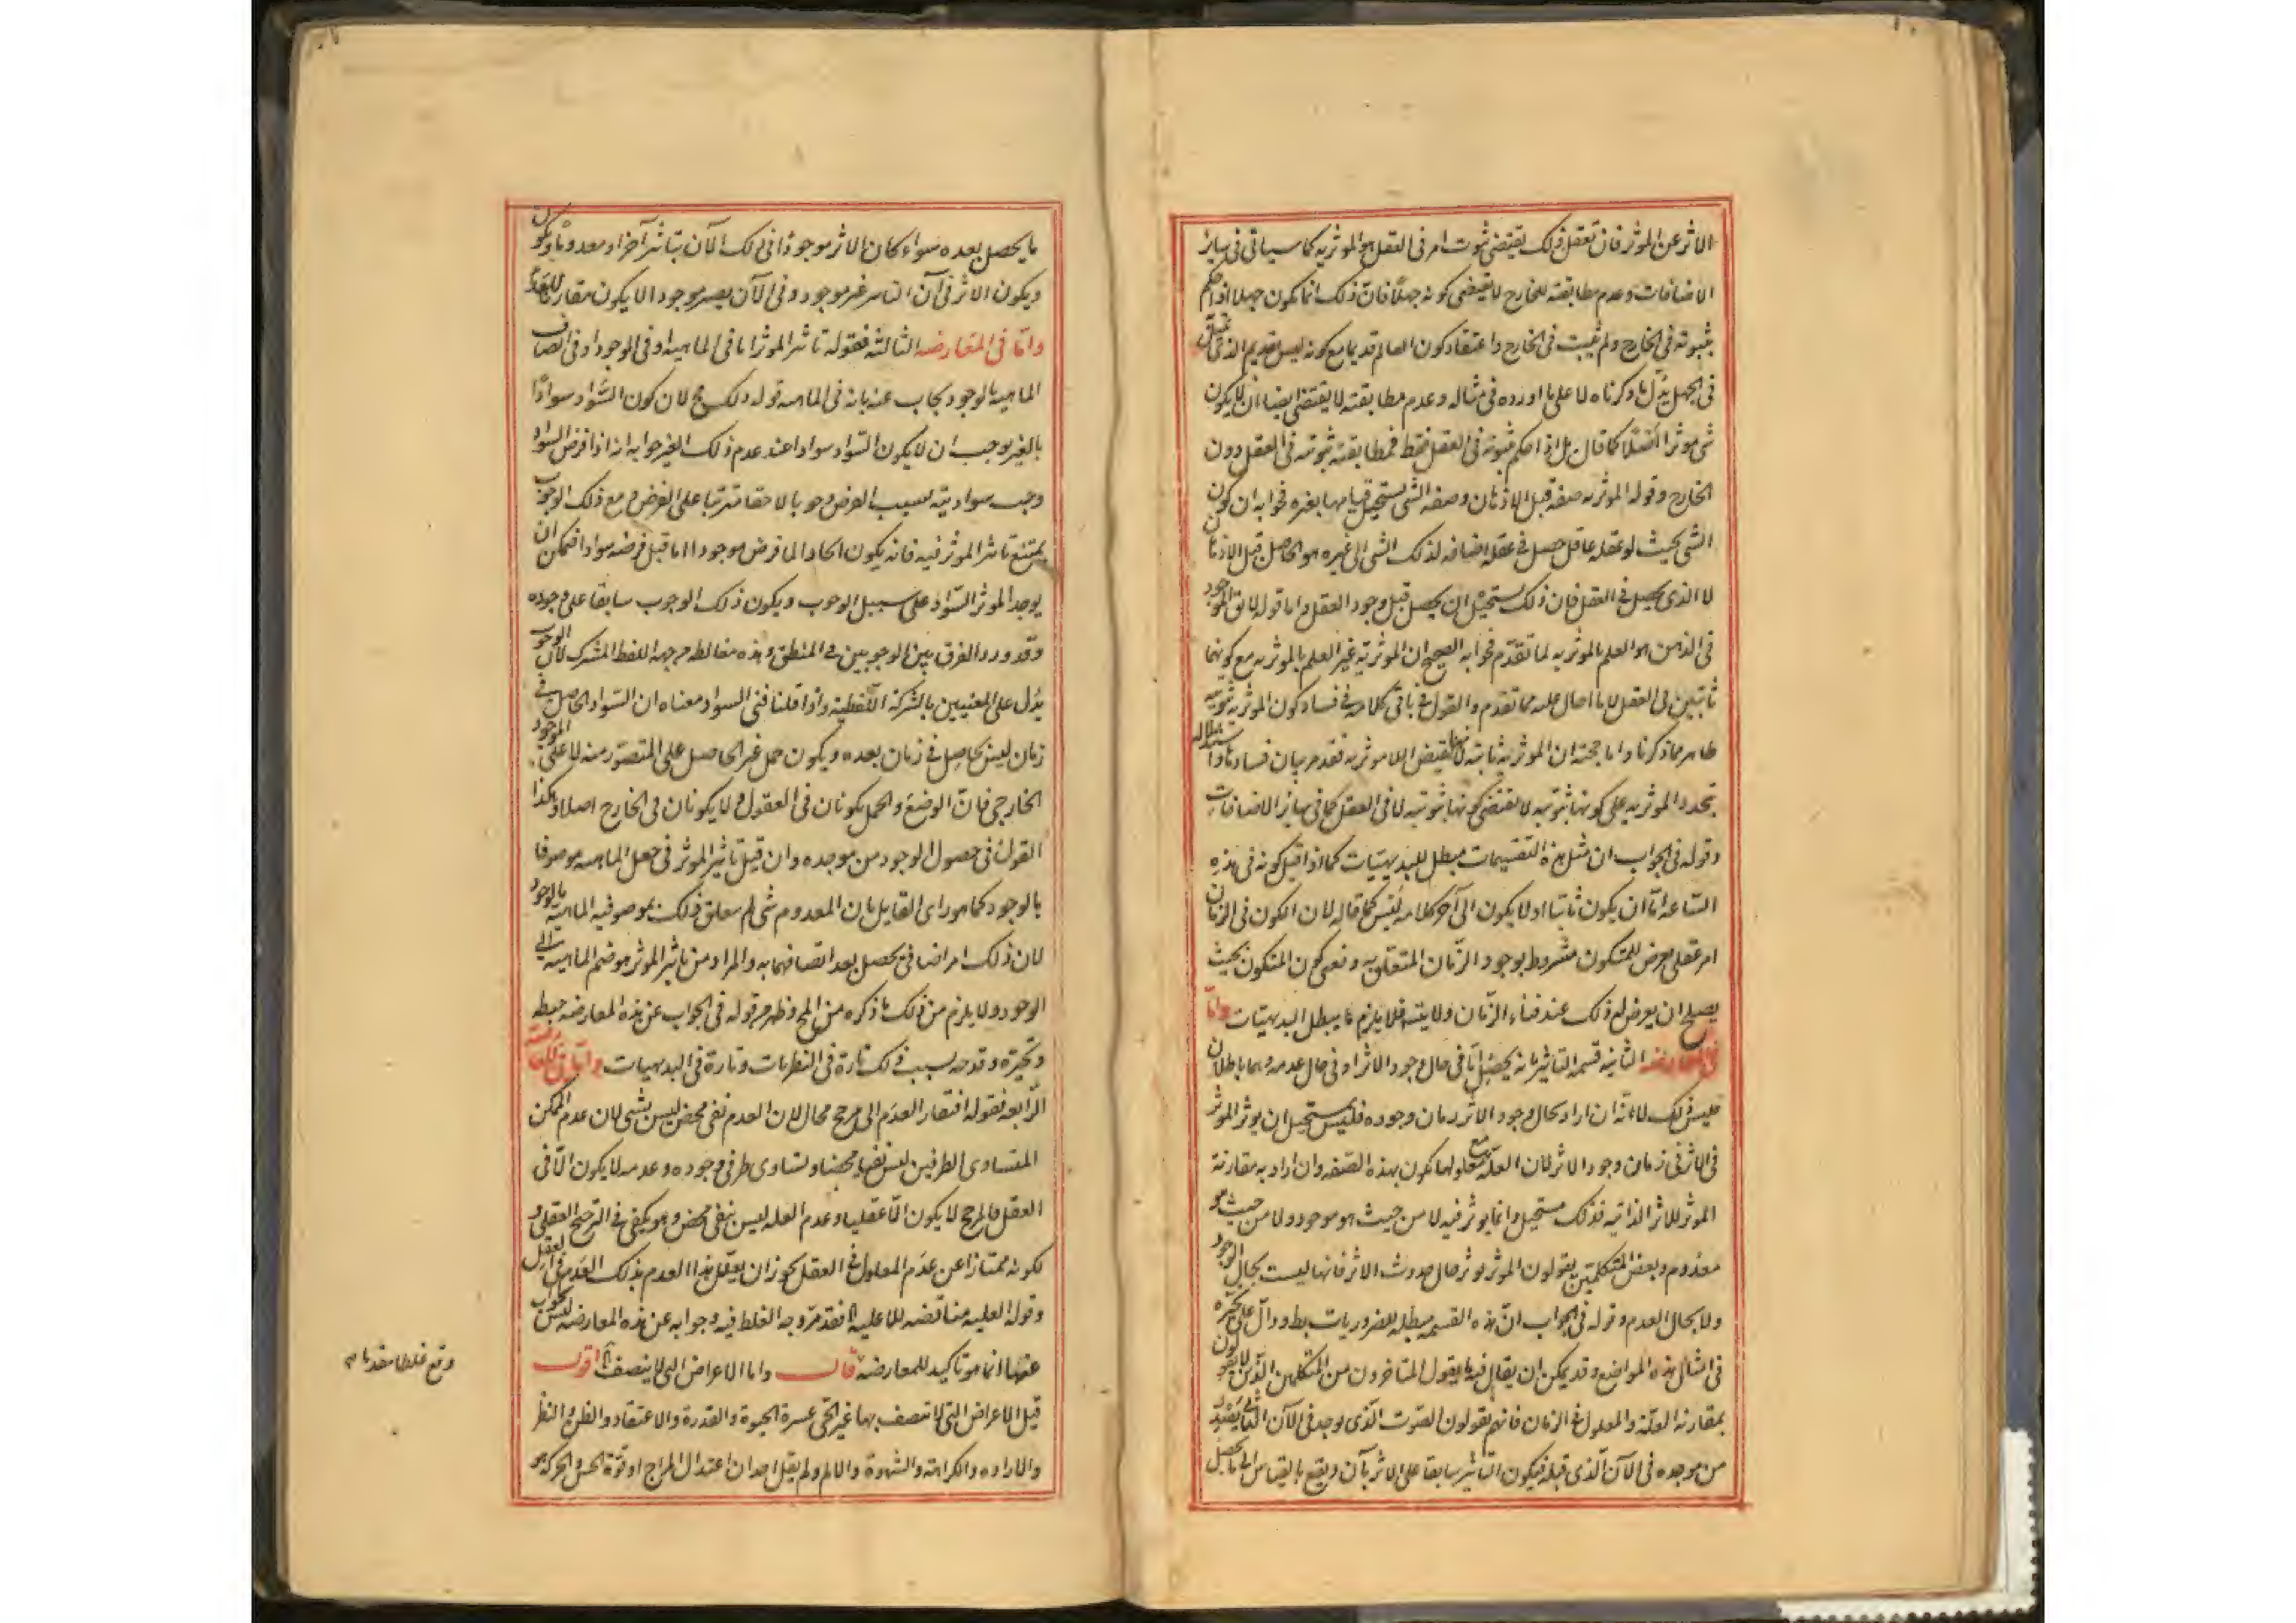 الاثر عن الموثر فان تعقل ذلك يقتضى ثبوت امر فى العقل هو الموثريه كما سياتى فى سائر
الاضافات و عدم مطابقته للخارج لا يقتضى كونه جهلا فان ذلك انما يكون جهلا اذا حكم
بثبوته فى الخارج ولم يثبت فى الخارج و اعتقاد كون العالم قديما مع كونه ليس بقديم الذى تمثل
فى الجهل يدل ما ذكرناه لا على ما اورده فى مثاله و عدم مطابقته لا يقتضى ايضا ان لا يكون
شى موثرا اصلا كما قال بل اذا حكم بثبوته فى العقل فقط فمطابقته ثبوته فى العقل دون
الخارج و قوله الموثريه صفة قبل الاذهان وصفة الشى يستحيل قيامها بغيره فجوابه ان كون
الشى بحيث لو عقله عاقل حصل فى عقله اضافه لذلك الشى الى غيره هو الحاصل قبل الاذهان
لا الذى يحصل فى العقل فان ذلك يستحيل ان يحصل قبل وجود العقل و اما قوله لان الموجود
فى الذهن هو العلم بالموثريه لما تقدم فجوابه الصحيح ان الموثرية غير العلم بالموثريه مع كونهما
ثابتين فى العقل لا ما احال عليه مما تقدم و القول فى باقى كلامه فى فساد كون الموثريه ثبوتيه
ظاهر مما ذكرنا و اما حجته ان الموثريه ثابتة لانها نقيض اللا موثريه فقدم بيان فسادها و استدلاله
بتجدد الموثريه على كونها ثبوتيه لا يقتضى كونها ثبوتيه لا فى العقل كما فى سائر الاضافات
و قوله فى الجواب ان مثل هذه التقسيمات مبطل للبديهيات كما اذا قيل كونه فى هذه
الساعة اما ان يكون ثابتا او لا يكون الى آخر كلامه ليس كما قاله لان الكون فى الزمان
امر عقلى يعرض للمتكون مشروط بوجود الزمان المتعلق به و نعنى كون المتكون بحيث
يصلح ان يعرض له ذلك عند فناء الزمان ولا يبقى فلا يلزم ما يبطل البديهيات و اما
فى المعارضه الثانيه قسمة التاثير بانه يحصل اما فى حال وجود الاثر او فى حال عدمه و هما باطلان
فليس ذلك لانه ان اراد بحال وجود الاثر زمان وجوده فليس يستحيل ان يوثر الموثر
فى الاثر فى زمان وجود الاثر لان العلة مع معلولها تكون بهذه الصفه و ان اراد به مقارنة
الموثر للاثر الذاتيه فذلك مستحيل و انما يوثر فيه لا من حيث هو موجود و لا من حيث هو
معدوم و بعض المتكلمين يقولون الموثر يوثر حال حدوث الاثر فانها ليست بحال الوجود
ولا بحال العدم و قوله فى الجواب ان هذه القسمه مبطله للضروريات بط و دال على تحيره
فى امثال هذه المواضع و قد يمكن ان يقال فيها ما يقول المتاخرون من المتكلمين الذين لا يقولون
بمقارنة العلة و المعلول فى الزمان فانهم يقولون الصوت الذى يوجد فى الآن الثانى يصدر
من موجده فى الآن الذى قبله فيكون التاثير سابقا على الاثر بآن و يقع بالقياس الى ما يحصل
ما يحصل بعده سواء كان الاثر موجودا فى ذلك الآن بتاثير آخر او معدوما و يكون
ويكون الاثر فى آن التاثير غير موجود و فى الآن يصير موجودا لا يكون مقارنا للعدم
و اما فى المعارضه الثالثه فقوله تاثير الموثر اما فى الماهيه او فى الوجود او فى اتصاف
الماهيه بالوجود يجاب عنه بانه فى الماهيه قوله ذلك مح لان كون السواد سوادا
بالغير يوجب ان لا يكون السواد سوادا عند عدم ذلك الغير جوابه انه اذا فرض السواد
وجب سواديته بسبب الفرض وجوبا لاحقا مترتبا على الفرض و مع ذلك الوجوب
يمتنع تاثير الموثر فيه فانه يكون ايجادا لما فرض موجودا اما قبل فرضه سوادا فيمكن ان
يوجد الموثر السواد على سبيل الوجوب و يكون ذلك الوجوب سابقا على وجوده
و قد ورد الفرق بين الوجوبين فى المنطق و هذه مغالطه من جهة اللفظ المشترك لان الوجوب
يدل على المعنيين بالشركة اللفظية و اذا قلنا فنى السواد معناه ان السواد الحاصل فى
زمان ليس بحاصل فى زمان بعده و يكون حمل غير الحاصل على المتصور منه لا على الموجود
الخارجى فان الوضع و الحمل يكونان فى العقول و لا يكونان فى الخارج اصلا و هكذا
القول فى حصول الوجود من موجده و ان قيل تاثير الموثر فى جعل الماهيه موصوفا
بالوجود كما هو راى القايل بان المعدوم شى لم يتعلق ذلك بموصوفيه الماهية بالوجود
لان ذلك امر اضافى يحصل بعد اتصافها به و المراد من تاثير الموثر هو ضم الماهيه الى
الوجود و لا يلزم من ذلك ما ذكره من المح و ظهر من قوله فى الجواب عن هذه المعارضه خبطه
و تحيره و قدحه بسبب ذلك تارة فى النظريات و تارة فى البديهيات و اما فى المعارضه
الرابعه فقوله افتقار العدم الى مرجح محال لان العدم نفى محض ليس بشى لان عدم الممكن
المتساوى الطرفين ليس نفيا محضا و تساوى طرفى وجوده و عدمه لا يكون الا فى
العقل فالمرجح لا يكون الا عقليا و عدم العله ليس بنفى محض و هو يكفى فى الترجيح العقلى و
لكونه ممتازا عن عدم المعلول فى العقل يجوز ان يعلل هذا العدم بذلك العدم فى العقل
و قوله العليه مناقضه للا عليه فقد مر وجه الغلط فيه و جوابه عن هذه المعارضه ليس بجواب
عنها انما هو تاكيد للمعارضه قال و اما الاعراض التى لا يتصف اقول
قيل الاعراض التى لا تتصف بها غير الحى عشرة الحيوة و القدرة و الاعتقاد و الظن و النظر
و الاراده و الكراهة و الشهوة و الالم و لم يقل احد ان اعتدال المزاج او قوة الحس و الحركه هو
وقع غلطا مقدما